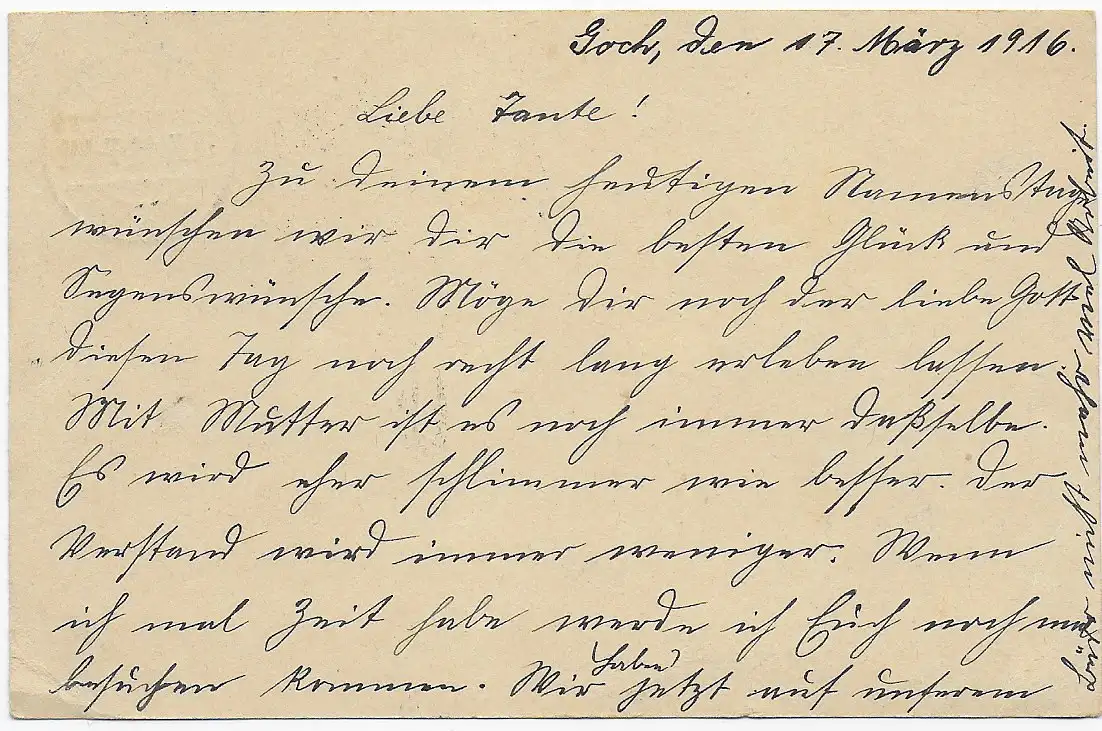 Goch, den 17. März 1916.
Liebe Tante!
Zu deinem heutigen Namenstage
wünschen wir dir die besten Glück und
Segenswünsche. Möge dir noch der liebe Gott
diesen Tag noch recht lang erleben lassen.
Mit Mutter ist es noch immer daßselbe.
Es wird eher schlimmer wie besser. Der
Verstand wird immer weniger. Wenn
ich mal Zeit habe werde ich Euch noch mal
besuchen kommen. Wir haben jetzt auf unserem